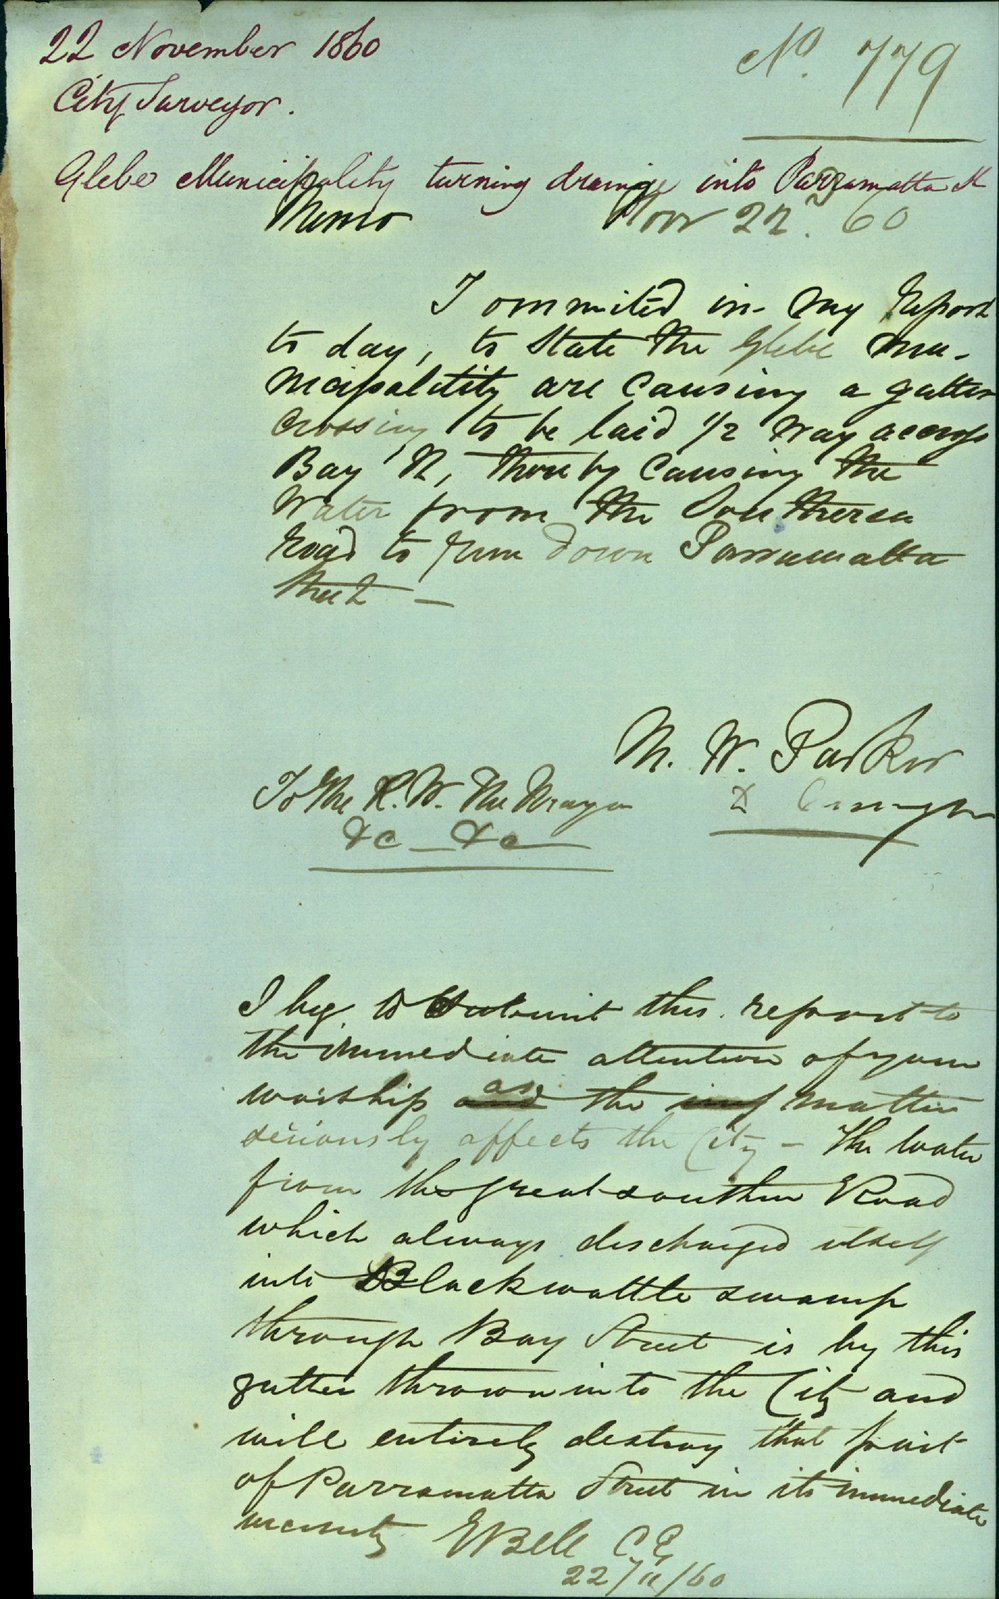 22 November 1860
No. 779
City Surveyor.
Glebe Municipality turning drainage into Parramatta St
Memo Novr 22nd. 60
I ommited in my Report
to day, to State the Glebe mu-
nicipalitity are causing a gutter
crossing to be laid 1/2 way across
Bay St, thereby causing the
Water from the Southern
Road to run down Parramatta
Street —
M. W. Parker
To The R. W. The Mayor
&c — &c
I beg to submit this report to
the immediate attention of your
worship as the matter
seriously affects the City – The water
from the great southern Road
which always discharged itself
into Blackwattle swamp
through Bay Street is by this
gutter thrown into the City and
will entirely destroy that part
of Parramatta Street in its immediate
vicinity EBell C E
22/11/60